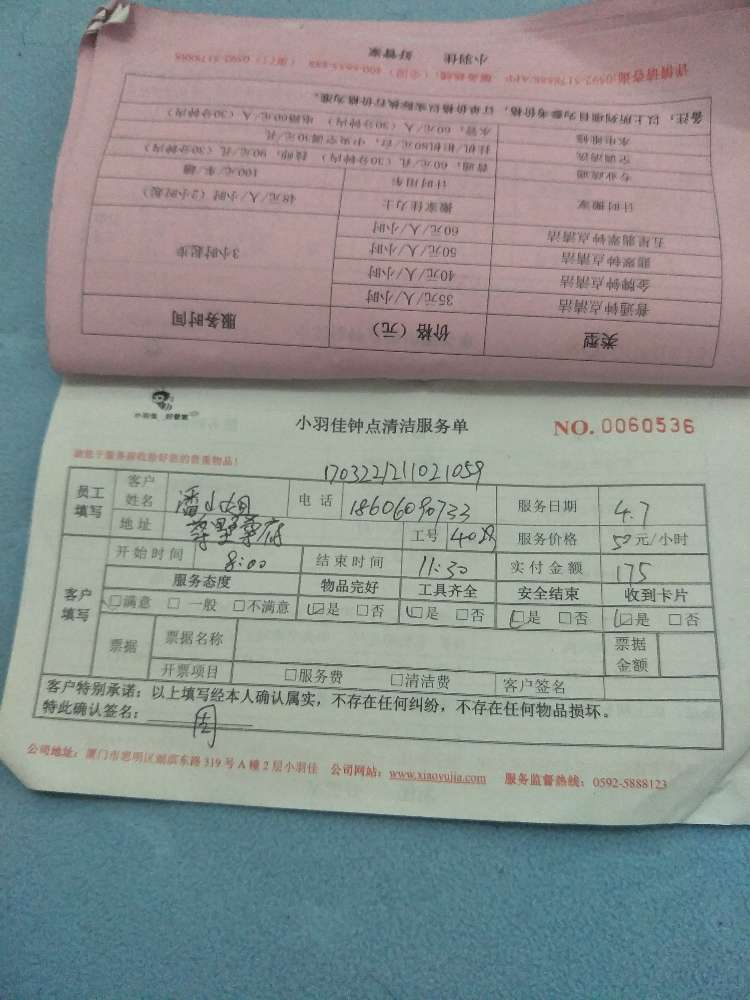 详情请咨询:0592-5178888/APP 服务热线:(全国) 400-5655-888 (厦门) 0592-5178888
小羽佳 好管家
类型 价格(元) 服务时间
普通钟点清洁 35元/人/小时 3小时起步
金牌钟点清洁 40元/人/小时
翡翠钟点清洁 50元/人/小时
五星翡翠钟点清洁 60元/人/小时
计时搬家 搬家佳力士 48元/人/小时(2小时起)
计时用车 100元/车/趟
专业疏通 普通,60元/孔(30分钟内) 技师,90元/孔(30分钟内)
空调清洗 挂机/柜机80元/台,中央空调30元/孔
水电维修 水管,60元/人(30分钟内) 电路60元/人(30分钟内)
备注:以上所列项目为参考价格,订单价格以实际执行价格为准。
小羽佳 好管家
小羽佳钟点清洁服务单 NO. 0060536
请您于服务前收拾好您的贵重物品!
170322121102l059
员工填写 客户姓名 潘小姐 电话 18606090733 服务日期 4.7
地址 工号 服务价格 50元/小时
客户填写 开始时间 8:00 结束时间 11:30 实付金额 175
服务态度 物品完好 工具齐全 安全结束 收到卡片
☑满意 □一般 □不满意 ☑是 □否 ☑是 □否 ☑是 □否 ☑是 □否
票据 票据名称 票据金额
开票项目 □服务费 □清洁费 客户签名
客户特别承诺:以上填写经本人确认属实,不存在任何纠纷,不存在任何物品损坏。
特此确认签名:
公司地址:厦门市思明区湖滨东路319号A幢2层小羽佳 公司网站:www.xiaoyujia.com 服务监督热线:0592-5888123